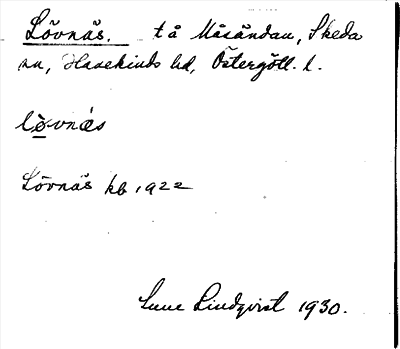 Lövnäs. tå Måsändan, Skeda
sn, Hanekinds hd, Östergötl. l.
lø̀vnǽs
Lövnäs kb 1922
Sune Lindqvist 1930.